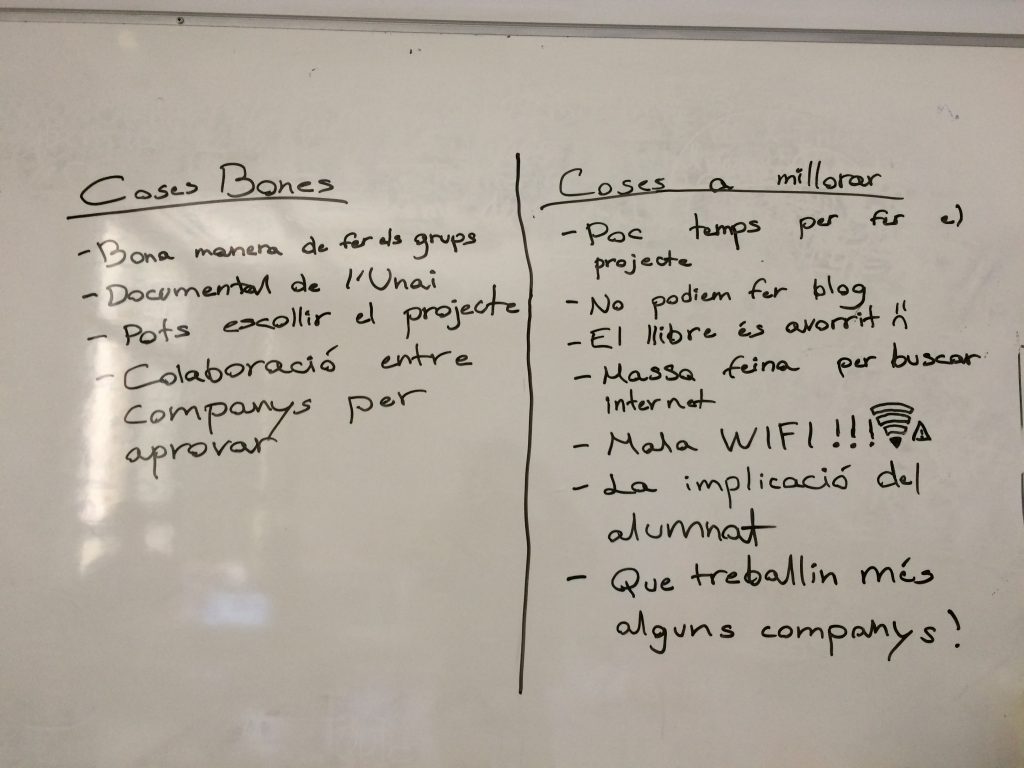 Coses Bones
- Bona manera de fer els grups
- Documental de l'Unai
- Pots escollir el projecte
- Colaboració entre
companys per
aprovar
Coses a millorar
- Poc temps per fer el
projecte
- No podiem fer blog
- El llibre és avorrit
- Massa feina per buscar
internet
- Mala WIFI!!!
- La implicació del
alumnat
- Que treballin més
alguns companys!